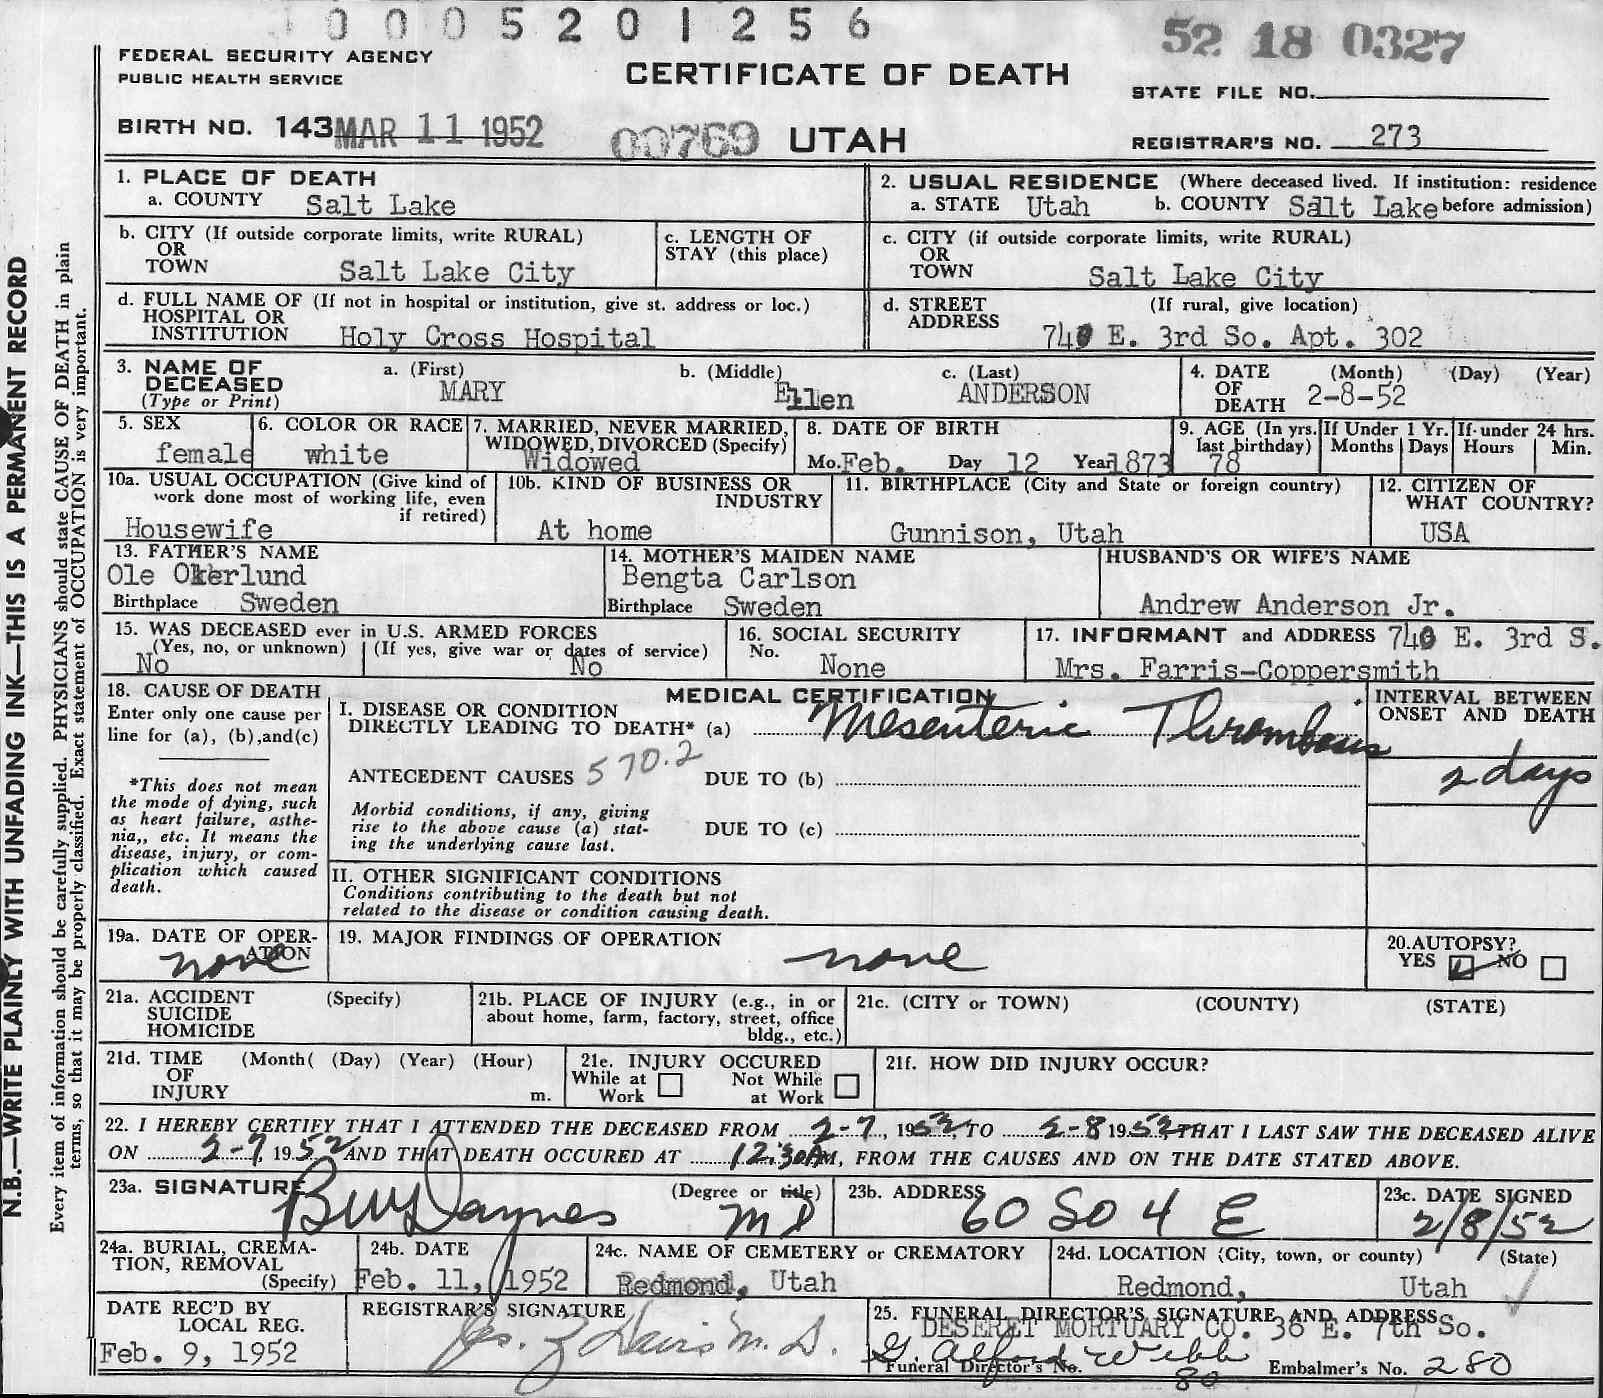 0005201256
52 18 0327
FEDERAL SECURITY AGENCY
PUBLIC HEALTH SERVICE
CERTIFICATE OF DEATH
STATE FILE NO.
BIRTH NO. 143 MAR 11 1952 00769 UTAH REGISTRAR'S NO. 273
N.B.—WRITE PLAINLY WITH UNFADING INK—THIS IS A PERMANENT RECORD
Every item of information should be carefully supplied. PHYSICIANS should state CAUSE OF DEATH in plain
terms, so that it may be properly classified. Exact statement of OCCUPATION is very important.
1. PLACE OF DEATH
a. COUNTY Salt Lake
2. USUAL RESIDENCE (Where deceased lived. If institution: residence
a. STATE Utah b. COUNTY Salt Lake before admission)
b. CITY (If outside corporate limits, write RURAL)
OR
TOWN Salt Lake City
c. LENGTH OF
STAY (this place)
c. CITY (if outside corporate limits, write RURAL)
OR
TOWN Salt Lake City
d. FULL NAME OF (If not in hospital or institution, give st. address or loc.)
HOSPITAL OR
INSTITUTION Holy Cross Hospital
d. STREET (If rural, give location)
ADDRESS E. 3rd So. Apt. 302
3. NAME OF
DECEASED
(Type or Print)
a. (First) b. (Middle) c. (Last)
MARY Ellen ANDERSON
4. DATE (Month) (Day) (Year)
OF
DEATH 2-8-52
5. SEX
female
6. COLOR OR RACE
white
7. MARRIED, NEVER MARRIED,
WIDOWED, DIVORCED (Specify)
Widowed
8. DATE OF BIRTH
Mo. Feb. Day 12 Year 1873
9. AGE (In yrs.
last birthday)
78
If Under 1 Yr.
Months Days
If under 24 hrs.
Hours Min.
10a. USUAL OCCUPATION (Give kind of
work done most of working life, even
if retired)
Housewife
10b. KIND OF BUSINESS OR
INDUSTRY
At home
11. BIRTHPLACE (City and State or foreign country)
Gunnison, Utah
12. CITIZEN OF
WHAT COUNTRY?
USA
13. FATHER'S NAME
Ole Okerlund
Birthplace Sweden
14. MOTHER'S MAIDEN NAME
Bengta Carlson
Birthplace Sweden
HUSBAND'S OR WIFE'S NAME
Andrew Anderson Jr.
15. WAS DECEASED ever in U.S. ARMED FORCES
(Yes, no, or unknown) (If yes, give war or dates of service)
No No
16. SOCIAL SECURITY
No.
None
17. INFORMANT and ADDRESS E. 3rd S.
Mrs. Farris-Coppersmith
18. CAUSE OF DEATH
Enter only one cause per
line for (a), (b), and(c)
*This does not mean
the mode of dying, such
as heart failure, asthe-
nia,, etc. It means the
disease, injury, or com-
plication which caused
death.
MEDICAL CERTIFICATION
I. DISEASE OR CONDITION
DIRECTLY LEADING TO DEATH* (a) Mesenteric Thrombosis
ANTECEDENT CAUSES 570.2 DUE TO (b)
Morbid conditions, if any, giving
rise to the above cause (a) stat-
ing the underlying cause last.
DUE TO (c)
II. OTHER SIGNIFICANT CONDITIONS
Conditions contributing to the death but not
related to the disease or condition causing death.
INTERVAL BETWEEN
ONSET AND DEATH
2 days
19a. DATE OF OPER-
ATION
none
19. MAJOR FINDINGS OF OPERATION
none
20. AUTOPSY?
YES NO
21a. ACCIDENT (Specify)
SUICIDE
HOMICIDE
21b. PLACE OF INJURY (e.g., in or
about home, farm, factory, street, office
bldg., etc.)
21c. (CITY or TOWN) (COUNTY) (STATE)
21d. TIME (Month( (Day) (Year) (Hour)
OF
INJURY m.
21e. INJURY OCCURED
While at Not While
Work at Work
21f. HOW DID INJURY OCCUR?
22. I HEREBY CERTIFY THAT I ATTENDED THE DECEASED FROM 2-7, 1952, TO 2-8 1952 THAT I LAST SAW THE DECEASED ALIVE
ON 2-7, 1952 AND THAT DEATH OCCURED AT 12:30AM, FROM THE CAUSES AND ON THE DATE STATED ABOVE.
23a. SIGNATURE (Degree or title)
Daynes MD
23b. ADDRESS
60 So 4 E
23c. DATE SIGNED
2/8/52
24a. BURIAL, CREMA-
TION, REMOVAL
(Specify)
24b. DATE
Feb. 11, 1952
24c. NAME OF CEMETERY or CREMATORY
Redmond, Utah
24d. LOCATION (City, town, or county) (State)
Redmond, Utah
DATE REC'D BY
LOCAL REG.
Feb. 9, 1952
REGISTRAR'S SIGNATURE
Davis M.D.
25. FUNERAL DIRECTOR'S SIGNATURE AND ADDRESS
DESERET MORTUARY CO. 36 E. 7th So.
G. Alford Webb
Funeral Director's No. 80 Embalmer's No. 280